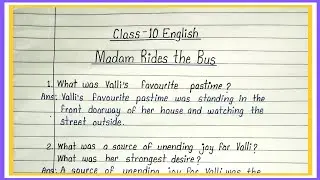 Class-10 English
Madam Rides the Bus
1. What was Valli's favourite pastime?
Ans: Valli's favourite pastime was standing in the
front doorway of her house and watching the
street outside.
2. What was a source of unending joy for Valli?
What was her strongest desire?
Ans: A source of unending joy for Valli was the